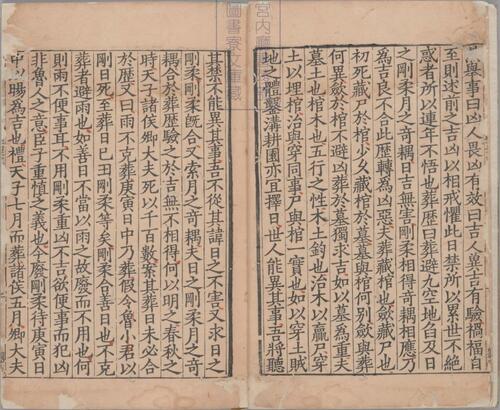 舉事曰凶人畏凶有效曰吉人冀吉有驗禍福自
至則述前之吉凶以相戒懼此日禁所以累世不絕
惑者所以連年不悟也葬歷曰葬避九空地臽及日
之剛柔月之奇耦日吉無害剛柔相得奇耦相應乃
為吉良不合此歷轉為凶惡夫葬藏棺也斂藏尸也
初死藏尸於棺少久藏棺於墓墓與棺何別斂與葬
何異斂於棺不避凶葬於墓獨求吉如以墓為重夫
墓土也棺木也五行之性木土鈞也治木以贏尸穿
土以埋棺治與穿同事尸與棺一實也如以穿土賊
地之體鑿溝耕園亦宜擇日世人能異其事吾將聽
其禁不能異其事吾不從其諱日之不害又求日之
剛柔剛柔既合又索月之奇耦夫日之剛柔月之奇
耦合於葬歷驗之於吉無不相得何以明之春秋之
時天子諸侯卿大夫死以千百數案其葬日未必合
於歷又曰雨不克葬庚寅日中乃葬假令魯小君以
剛日死至葬日己丑剛柔等矣剛柔合善日也不克
葬者避雨也如善日不當以雨之故廢而不用也何
則雨不便事耳不用剛柔重凶不吉欲便事而犯凶
非魯人之意臣子重慎之義也今廢剛柔待庚寅日
中以暘為吉也禮天子七月而葬諸侯五月卿大夫
宮内廳
圖書寮文庫藏